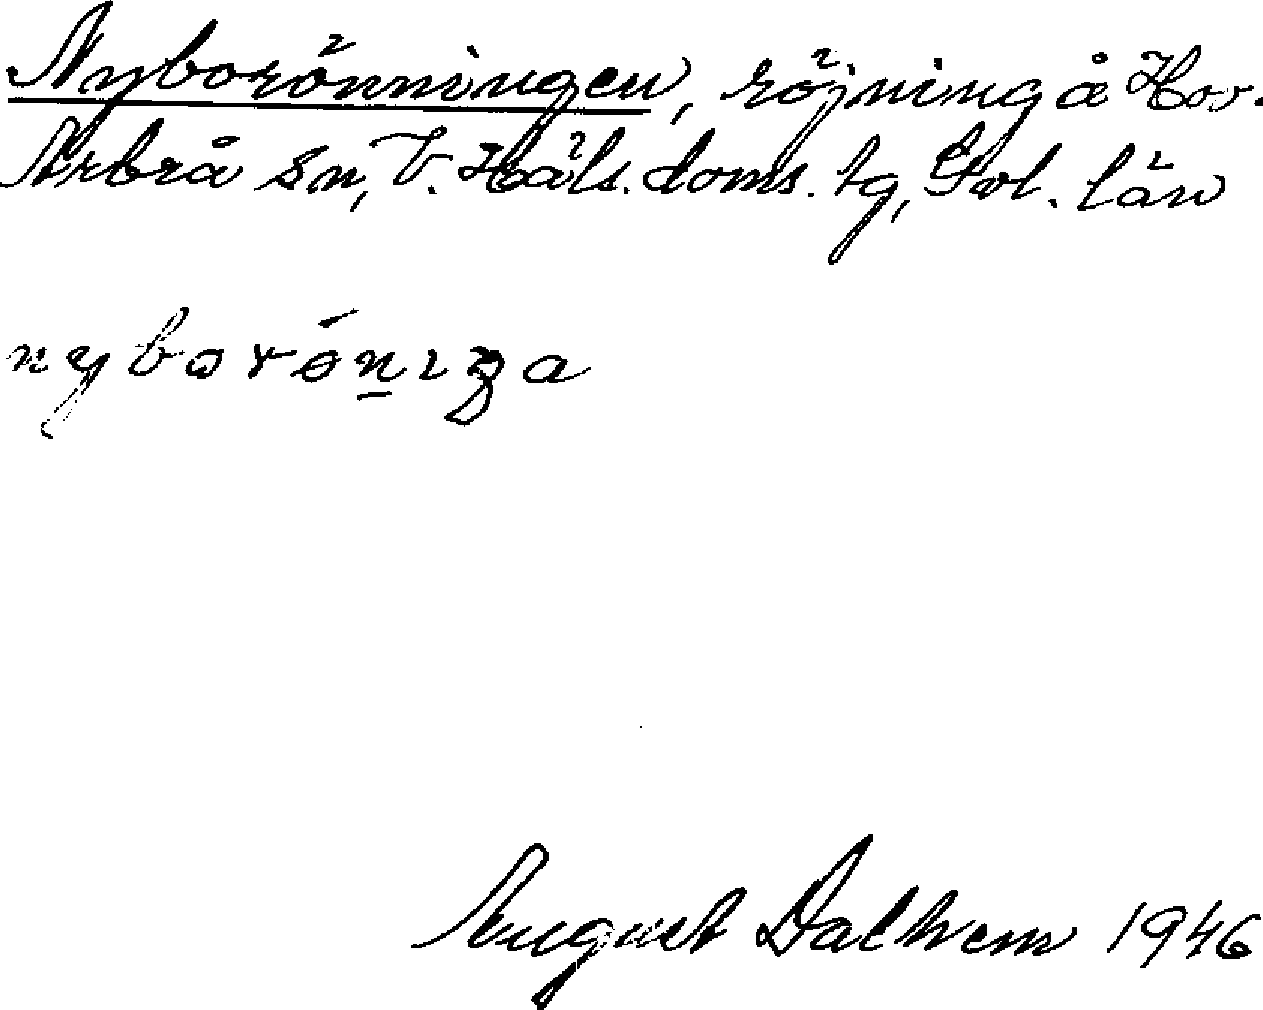 Nyborönningen, röjning å Hov.
Arbrå sn, V. Häls. doms. lg, Gvl. län
nyborö́n̲ıŋa
August Dalhem 1946